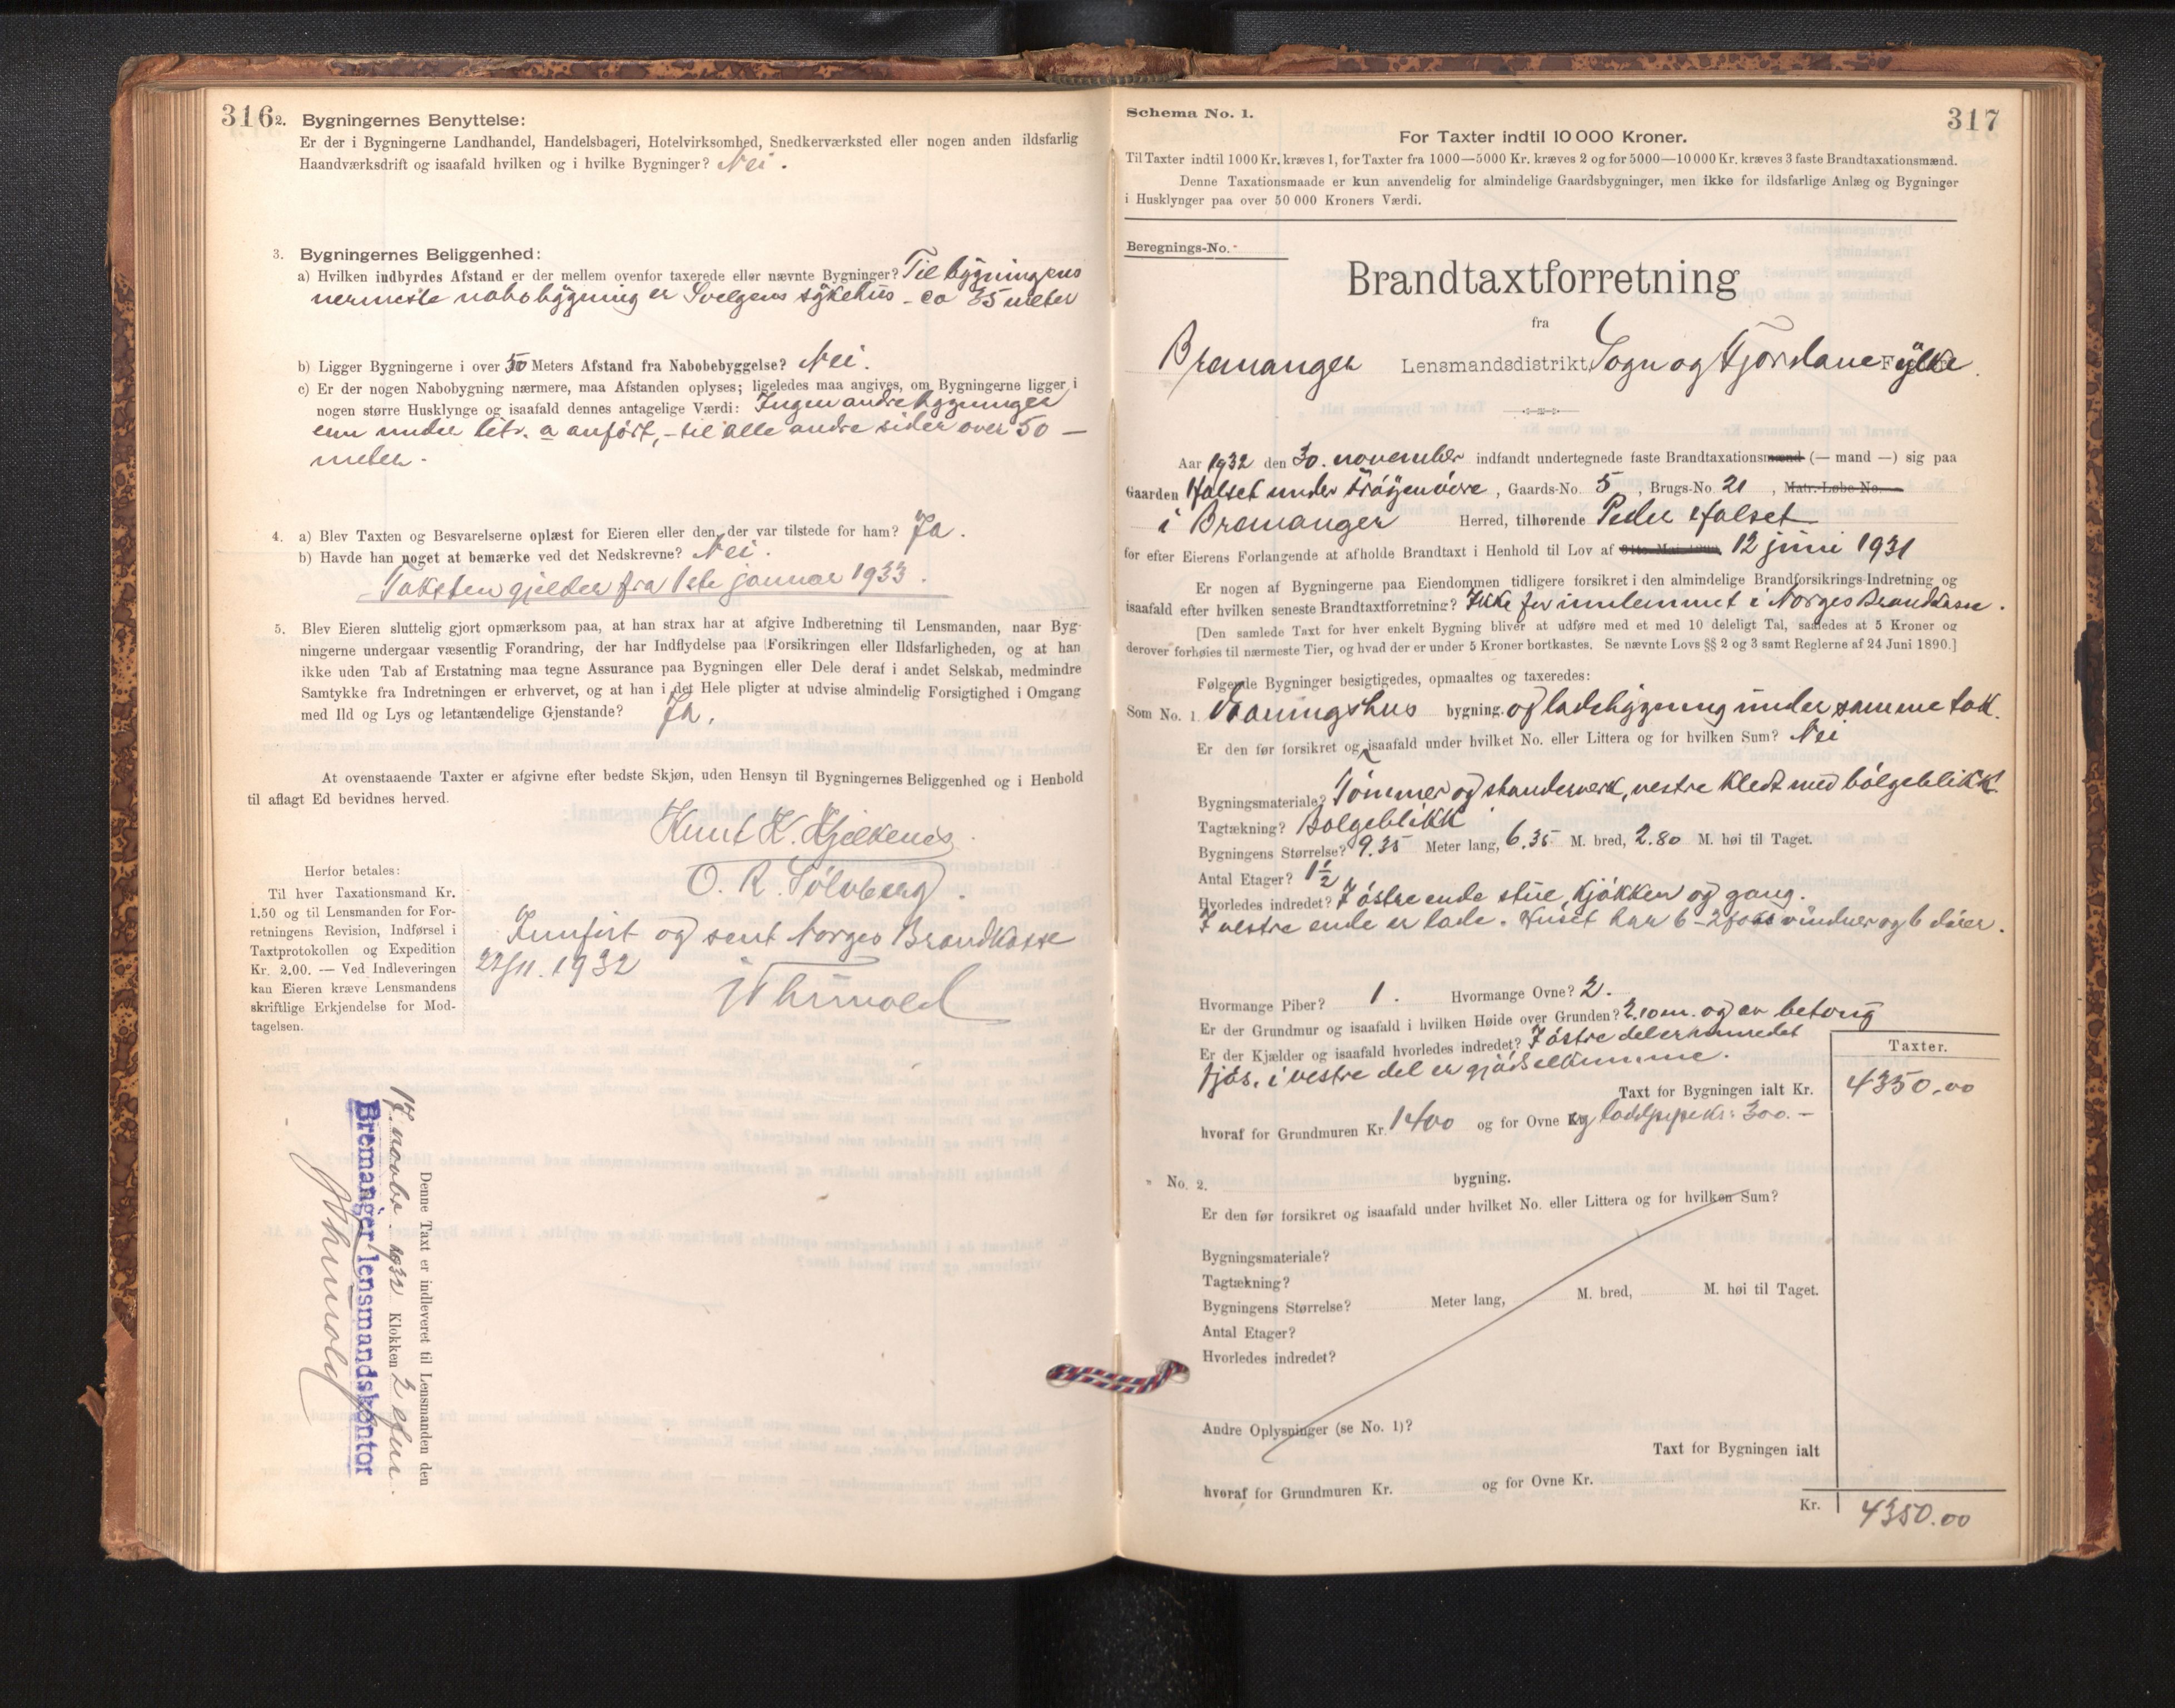 316
2. Bygningernes Benyttelse:
Er der i Bygningerne Landhandel, Handelsbageri, Hotelvirksomhed, Snedkerværksted eller nogen anden ildsfarlig
Haandværksdrift og isaafald hvilken og i hvilke Bygninger? Nei.
3. Bygningernes Beliggenhed:
a) Hvilken indbyrdes Afstand er der mellem ovenfor taxerede eller nævnte Bygninger? Til bygningens
nermeste nabobygning er Svelgens sykehus - ca 35 meter
b) Ligger Bygningerne i over 50 Meters Afstand fra Nabobebyggelse? Nei.
c) Er der nogen Nabobygning nærmere, maa Afstanden oplyses; ligeledes maa angives, om Bygningerne ligger i
nogen større Husklynge og isaafald dennes antagelige Værdi: Ingen andre bygninger
enn under litr. a anført, - til alle andre sider over 50 -
meter.
4. a) Blev Taxten og Besvarelserne oplæst for Eieren eller den, der var tilstede for ham? Ja.
b) Havde han noget at bemærke ved det Nedskrevne? Nei.
Taksten gjelder fra 1ste januar 1933.
5. Blev Eieren sluttelig gjort opmærksom paa, at han strax har at afgive Indberetning til Lensmanden, naar Byg-
ningerne undergaar væsentlig Forandring, der har Indflydelse paa Forsikringen eller Ildsfarligheden, og at han
ikke uden Tab af Erstatning maa tegne Assurance paa Bygningen eller Dele deraf i andet Selskab, medmindre
Samtykke fra Indretningen er erhvervet, og at han i det Hele pligter at udvise almindelig Forsigtighed i Omgang
med Ild og Lys og letantændelige Gjenstande? Ja.
At ovenstaaende Taxter er afgivne efter bedste Skjøn, uden Hensyn til Bygningernes Beliggenhed og i Henhold
til aflagt Ed bevidnes herved.
Knut K.
O. R. Sølvberg.
Herfor betales:
Til hver Taxationsmand Kr.
1.50 og til Lensmanden for For-
retningens Revision, Indførsel i
Taxtprotokollen og Expedition
Kr. 2.00. — Ved Indleveringen
kan Eieren kræve Lensmandens
skriftlige Erkjendelse for Mod-
tagelsen.
Innført og sent Norges Brandkasse
22/11. 1932
Denne Taxt er indleveret til Lensmanden den
17. novbr. 1932 Klokken 2 efm.
Bremanger lensmandskontor
317
Schema No. 1.
For Taxter indtil 10 000 Kroner.
Til Taxter indtil 1000 Kr. kræves 1, for Taxter fra 1000—5000 Kr. kræves 2 og for 5000—10 000 Kr. kræves 3 faste Brandtaxationsmænd.
Denne Taxationsmaade er kun anvendelig for almindelige Gaardsbygninger, men ikke for ildsfarlige Anlæg og Bygninger
i Husklynger paa over 50 000 Kroners Værdi.
Beregnings-No.
Brandtaxtforretning
fra
Bremanger Lensmandsdistrikt, Sogn og Fjordane Fylke.
Aar 1932 den 30. november indfandt undertegnede faste Brandtaxationsmænd (— mand —) sig paa
Gaarden Halset under Frøyenøvre, Gaards-No. 5, Brugs-No. 21, Matr.-Løbe-No.
i Bremanger Herred, tilhørende Peder Halset
for efter Eierens Forlangende at afholde Brandtaxt i Henhold til Lov af 12 juni 1931
Er nogen af Bygningerne paa Eiendommen tidligere forsikret i den almindelige Brandforsikrings-Indretning og
isaafald efter hvilken seneste Brandtaxtforretning? Ikke før innlemmet i Norges Brandkasse.
[Den samlede Taxt for hver enkelt Bygning bliver at udføre med et med 10 deleligt Tal, saaledes at 5 Kroner og
derover forhøies til nærmeste Tier, og hvad der er under 5 Kroner bortkastes. Se nævnte Lovs §§ 2 og 3 samt Reglerne af 24 Juni 1890.]
Følgende Bygninger besigtigedes, opmaaltes og taxeredes:
Som No. 1. Vaaningshus bygning. og ladebygning under samme tak.
Er den før forsikret og isaafald under hvilket No. eller Littera og for hvilken Sum? Nei
Bygningsmateriale? Tømmer og standerverk, vestre kledt med bølgeblikk.
Tagtækning? Bølgeblikk
Bygningens Størrelse? 9.35 Meter lang, 6.35 M. bred, 2.80 M. høi til Taget.
Antal Etager? 1½
Hvorledes indredet? I østre ende stue, kjøkken og gang.
I vestre ende er lade. Huset har 6 - 2 fags vinduer og 6 dører.
Hvormange Piber? 1. Hvormange Ovne? 2.
Er der Grundmur og isaafald i hvilken Høide over Grunden? 2.10 m. og av betong
Er der Kjælder og isaafald hvorledes indredet? I østre del er innredet
fjøs, i vestre del er gjødselkumme.
Taxter.
Taxt for Bygningen ialt Kr. 4350.00
hvoraf for Grundmuren Kr. 1400 og for Ovne og loddpipe kr: 300.-
" No. 2. bygning.
Er den før forsikret og isaafald under hvilket No. eller Littera og for hvilken Sum?
Bygningsmateriale?
Tagtækning?
Bygningens Størrelse? Meter lang, M. bred, M. høi til Taget.
Antal Etager?
Hvorledes indredet?
Andre Oplysninger (se No. 1)?
Taxt for Bygningen ialt
hvoraf for Grundmuren Kr. og for Ovne Kr.
Kr. 4350.00